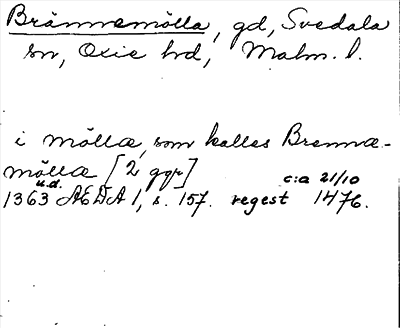 Brännemölla, gd, Svedala
sn, Oxie hd, Malm. l.
i mölla, som kalles Brenne-
mölla [2 ggr]
u.d. c:a 21/10
1363 ÆDA 1, s. 157. regest 1476.